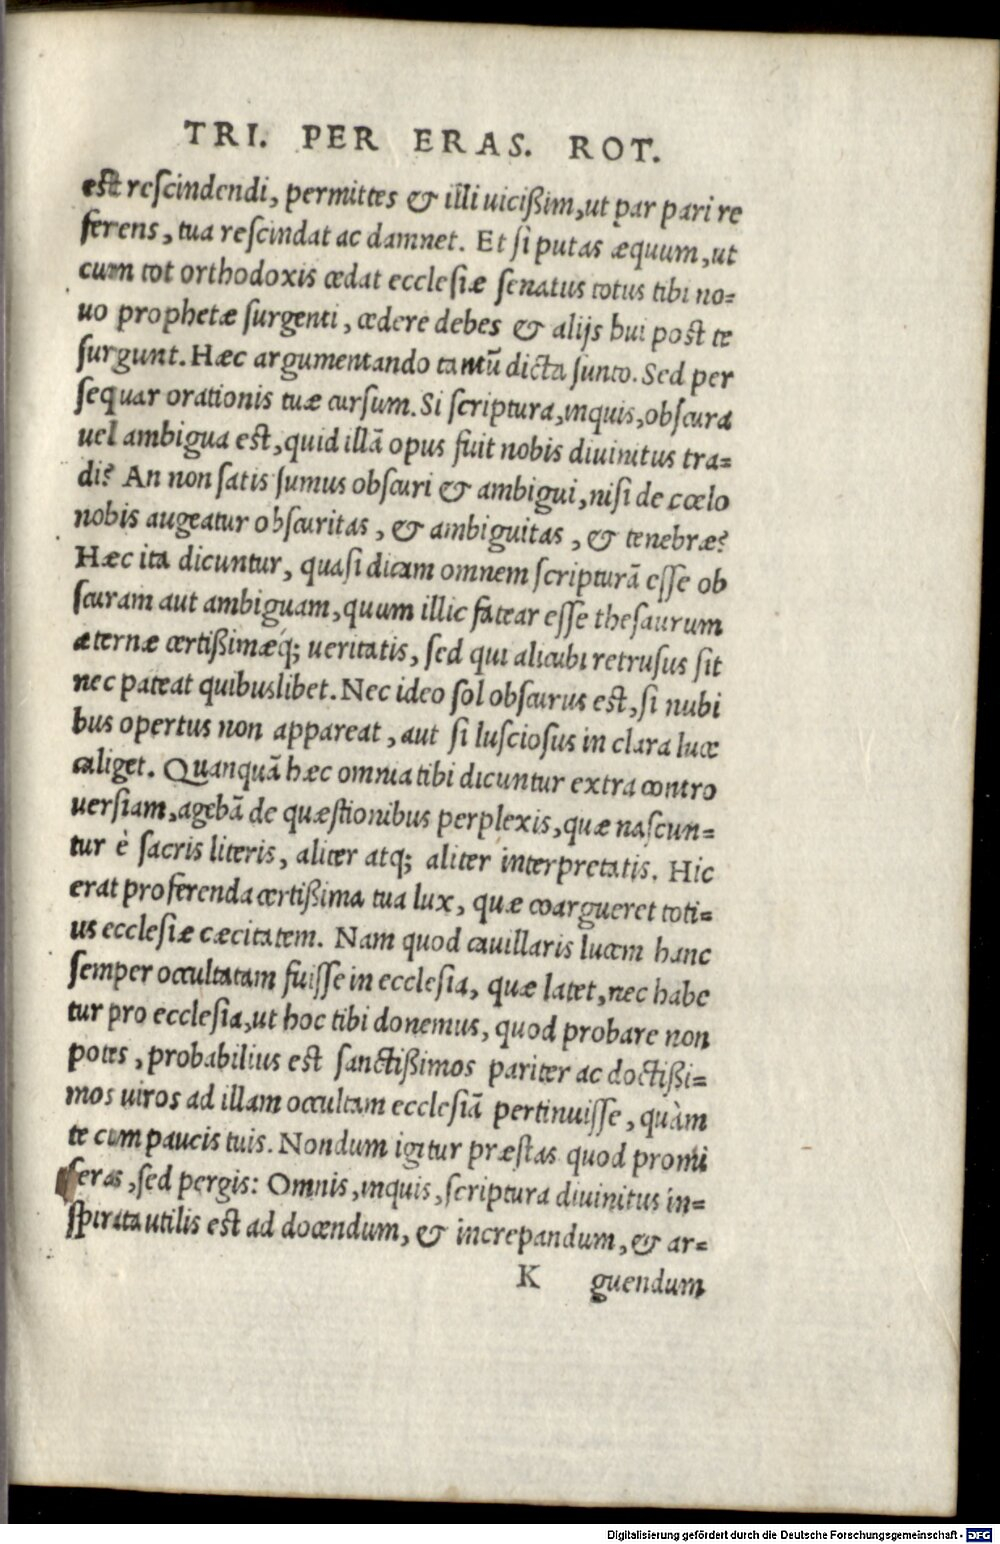 TRI. PER ERAS. ROT.
est rescindendi, permittes & illi uicißim, ut par pari re
ferens, tua rescindat ac damnet. Et si putas æquum, ut
cum tot orthodoxis cedat ecclesiæ senatus totus tibi no=
uo prophetæ surgenti, cedere debes & alijs hui post te
surgunt. Hæc argumentando tantũ dicta sunto. Sed per
sequar orationis tuæ cursum. Si scriptura, inquis, obscura
uel ambigua est, quid illã opus fuit nobis diuinitus tra=
di? An non satis sumus obscuri & ambigui, nisi de cœlo
nobis augeatur obscuritas, & ambiguitas, & tenebræ?
Hæc ita dicuntur, quasi dicam omnem scripturã esse ob
scuram aut ambiguam, quum illic fatear esse thesaurum
æternæ certißimæq́; ueritatis, sed qui alicubi retrusus sit
nec pateat quibuslibet. Nec ideo sol obscurus est, si nubi
bus opertus non appareat, aut si lusciosus in clara luce
caliget. Quanquã hæc omnia tibi dicuntur extra contro
uersiam, agebã de quæstionibus perplexis, quæ nascun=
tur è sacris literis, aliter atq; aliter interpretatis. Hic
erat proferenda certißima tua lux, quæ coargueret toti=
us ecclesiæ cæcitatem. Nam quod cauillaris lucem hanc
semper occultatam fuisse in ecclesia, quæ latet, nec habe
tur pro ecclesia, ut hoc tibi donemus, quod probare non
potes, probabilius est sanctißimos pariter ac doctißi=
mos uiros ad illam occultam ecclesiã pertinuisse, quàm
te cum paucis tuis. Nondum igitur præstas quod promi
seras, sed pergis: Omnis, inquis, scriptura diuinitus in=
spirata utilis est ad docendum, & increpandum, & ar=
K guendum
Digitalisierung gefördert durch die Deutsche Forschungsgemeinschaft - DFG